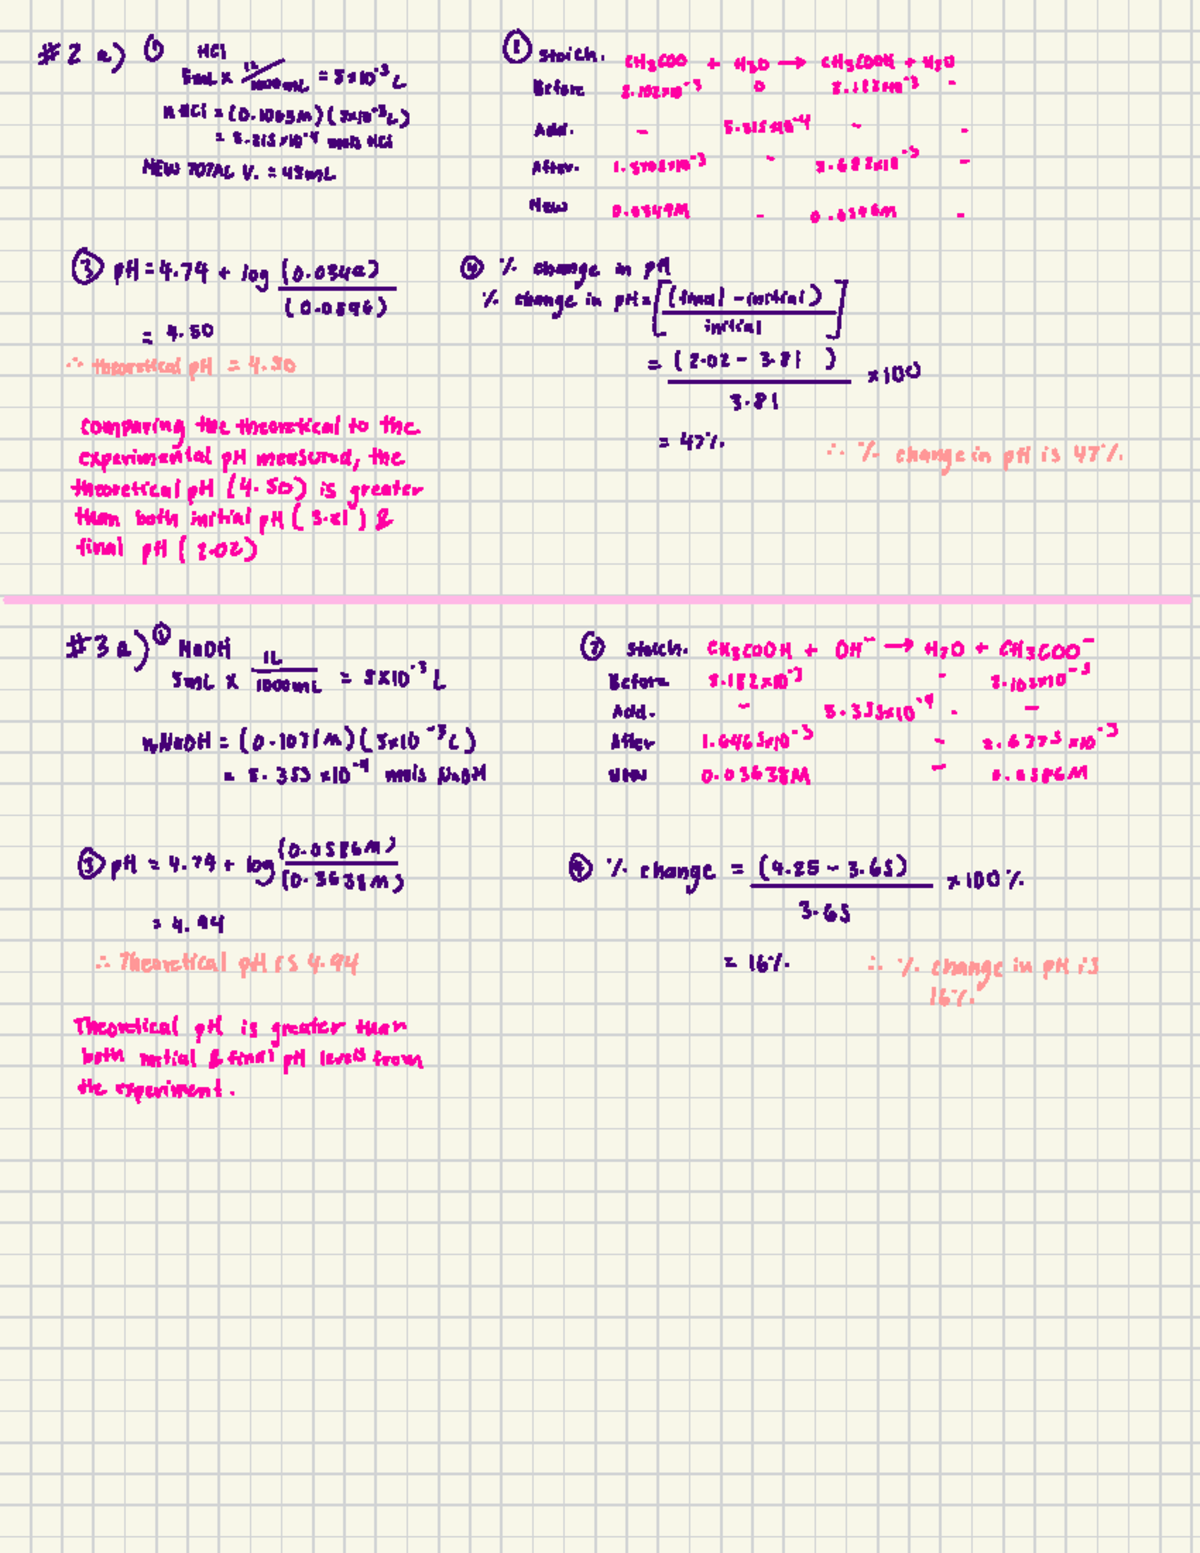 #2 a) ① HCl
5mL × 1L/1000mL = 5×10⁻³ L
nHCl = (0.1063M)(5×10⁻³L)
= 5.315×10⁻⁴ mols HCl
NEW TOTAL V. = 45mL
① Stoich. CH₃COO + H₃O → CH₃COOH + H₂O
Before 2.102×10⁻³ 0 2.182×10⁻³ -
Add. - 5.315×10⁻⁴ - -
After. 1.5705×10⁻³ - 2.682×10⁻³ -
New 0.0349M - 0.0596M -
③ pH = 4.74 + log (0.0349)/(0.0596)
= 4.50
∴ theoretical pH = 4.50
Comparing the theoretical to the
experimental pH measured, the
theoretical pH (4.50) is greater
than both initial pH (3.81) &
final pH (2.02)
④ % change in pH
% change in pH = [(final - initial)/initial]
= (2.02 - 3.81)/3.81 ×100
= 47%
∴ % change in pH is 47%.
#3 a) ① NaOH
5mL × 1L/1000mL = 5×10⁻³ L
nNaOH = (0.1071M)(5×10⁻³L)
= 5.355×10⁻⁴ mols NaOH
② Stoich. CH₃COOH + OH⁻ → H₂O + CH₃COO⁻
Before 2.182×10⁻³ - 2.102×10⁻³
Add. - 5.355×10⁻⁴ - -
After 1.6465×10⁻³ - 2.6375×10⁻³
New 0.03658M - 0.0586M
③ pH = 4.74 + log (0.0586M)/(0.3658M)
= 4.94
∴ Theoretical pH is 4.94
Theoretical pH is greater than
both initial & final pH levels from
the experiment.
④ % change = (4.25 - 3.65)/3.65 ×100%
= 16%.
∴ % change in pH is
16%.